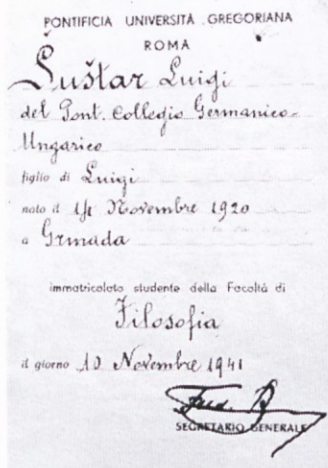 PONTIFICIA UNIVERSITÀ GREGORIANA
ROMA
Šuštar Luigi
del Pont. Collegio Germanico-
Ungarico
figlio di Luigi
nato il 14 Novembre 1920
a Grmada
immatricolato studente della Facoltà di
Filosofia
il giorno 10 Novembre 1941
SEGRETARIO GENERALE